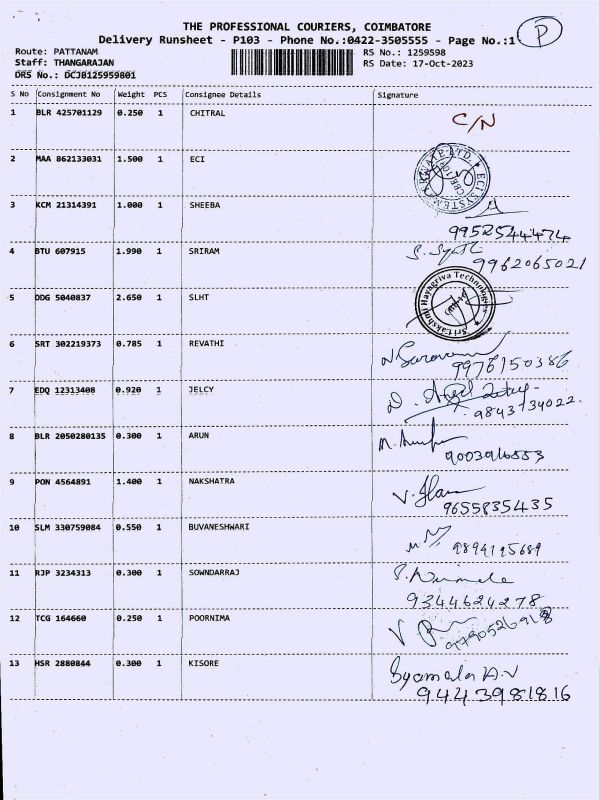 THE PROFESSIONAL COURIERS, COIMBATORE
Delivery Runsheet - P103 - Phone No.:0422-3505555 - Page No.:1 P
Route: PATTANAM RS No.: 1259598
Staff: THANGARAJAN RS Date: 17-Oct-2023
DRS No.: DCJB125959801
S No Consignment No Weight PCS Consignee Details Signature
1 BLR 425701129 0.250 1 CHITRAL C/N
2 MAA 862133031 1.500 1 ECI
3 KCM 21314391 1.000 1 SHEEBA
9952544474
4 BTU 607915 1.990 1 SRIRAM
9962065021
5 DDG 5040837 2.650 1 SLHT
Sri Lakshmi Hayagriva Technologies
6 SRT 302219373 0.785 1 REVATHI
9976150386
7 EDQ 12313408 0.920 1 JELCY
9843134022
8 BLR 2050280135 0.300 1 ARUN
9003916553
9 PON 4564891 1.400 1 NAKSHATRA
9655835435
10 SLM 330759084 0.550 1 BUVANESHWARI
11 RJP 3234313 0.300 1 SOWNDARRAJ
9344624278
12 TCG 164660 0.250 1 POORNIMA
13 HSR 2880844 0.300 1 KISORE
Syamala A.V
9443981816